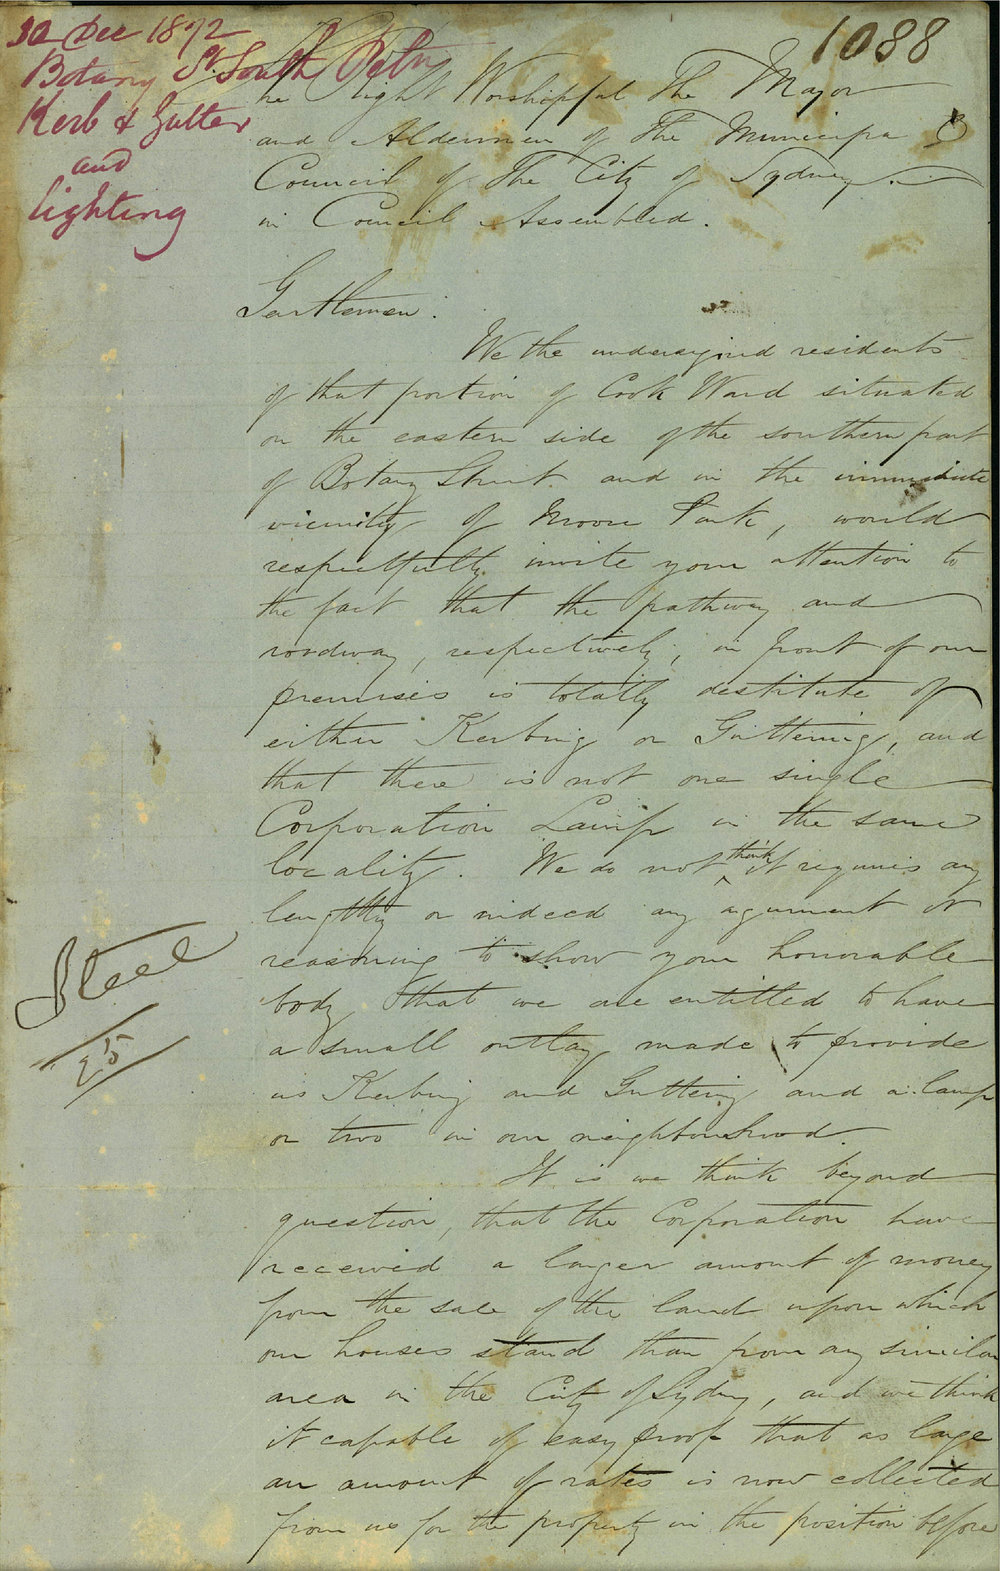 30 Dec 1872
Botany St South Petn
Kerb & Gutter
and
lighting
1088
The Right Worshipful The Mayor
and Aldermen of The Municipal
Council of The City of Sydney.
in Council Assembled.
Gentlemen.
We the undersigned residents
of that portion of Cook Ward situated
on the eastern side of the southern part
of Botany Street and in the immediate
vicinity of Moore Park, would
respectfully invite your attention to
the fact that the pathway and
roadway, respectively, in front of our
premises is totally destitute of
either Kerbing or Guttering, and
that there is not one single
Corporation Lamp in the same
locality. We do not think it requires any
lengthy or indeed any argument or
reasoning to show your honorable
body that we are entitled to have
a small outlay made to provide
us Kerbing and Guttering and a lamp
or two in our neighbourhood.
It is we think beyond
question, that the Corporation have
received a larger amount of money
from the sale of the land upon which
our houses stand than from any similar
area in the City of Sydney, and we think
it capable of easy proof that as large
an amount of rates is now collected
from us for the property in the position before
Steel
25